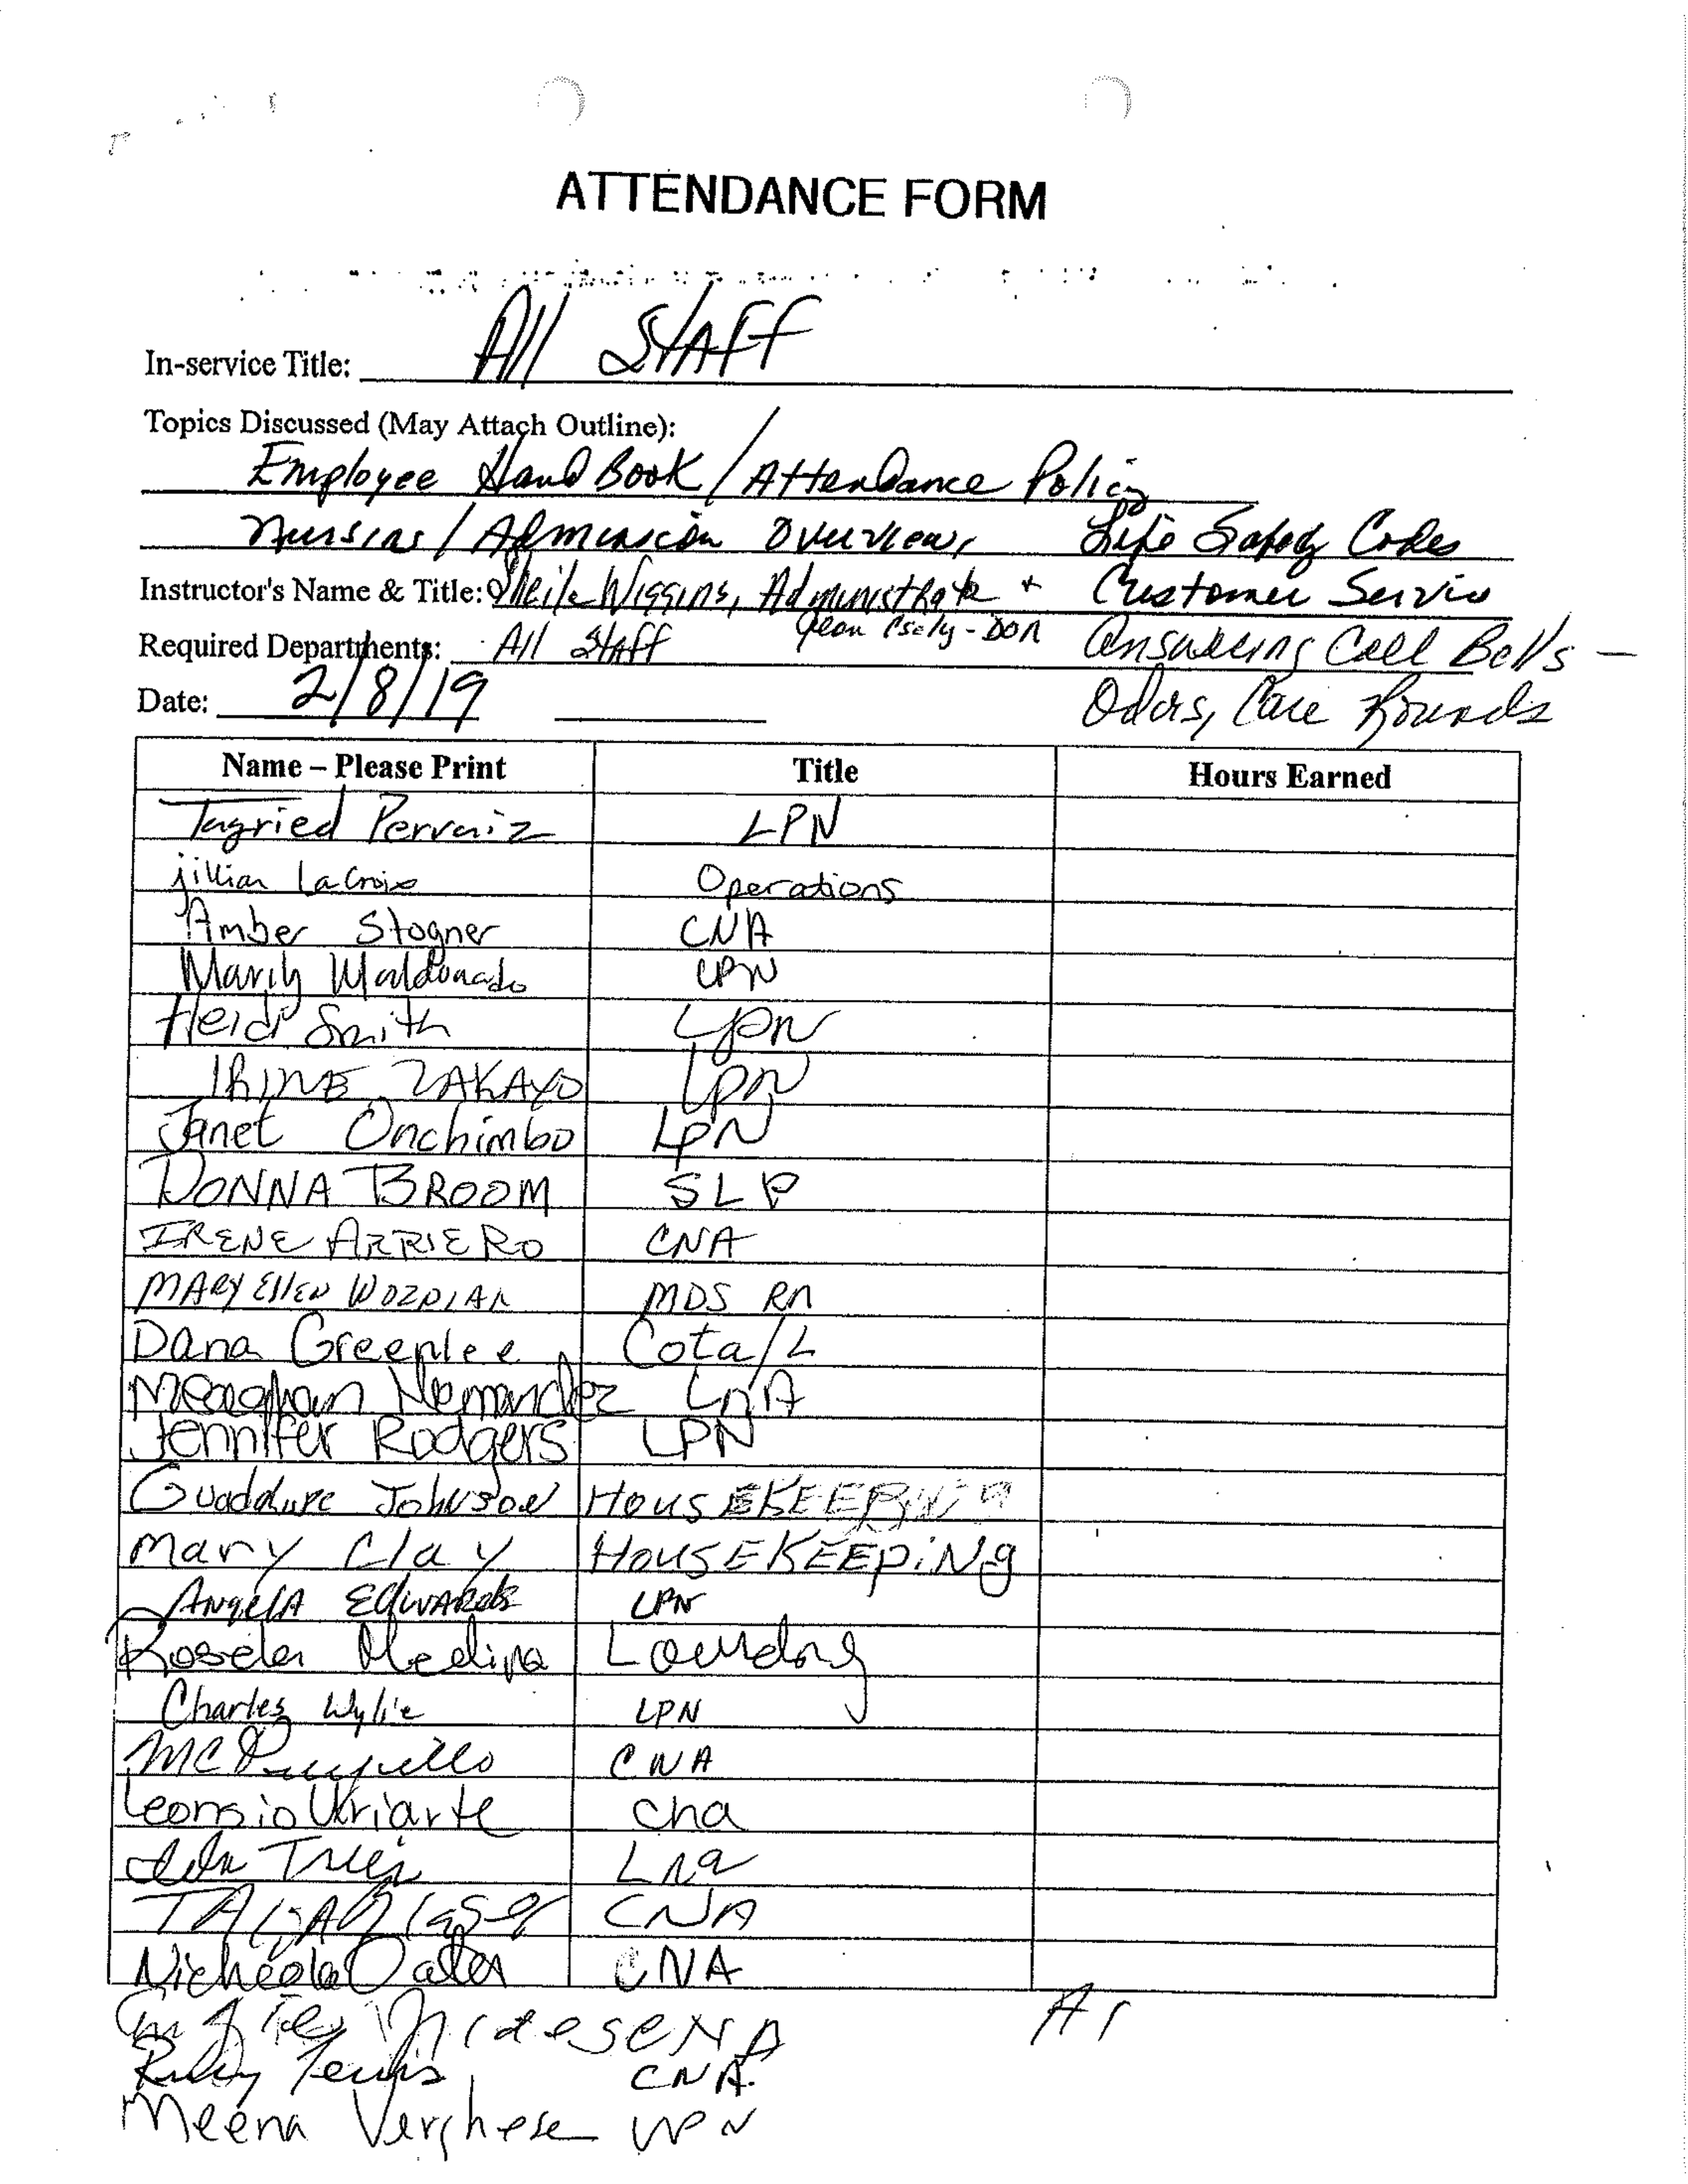 ATTENDANCE FORM
In-service Title: All Staff
Topics Discussed (May Attach Outline):
Employee HandBook / Attendance Policy
Nursing / Admission Overview, Life Safety Codes
Instructor's Name & Title: Sheila Wiggins, Administrator + Customer Service
Jean - DON
Required Departments: All Staff Answering Call Bells -
Date: 2/8/19 Odors, Care Rounds
Name – Please Print Title Hours Earned
Tagried Pervaiz LPN
jillian LaCroix Operations
Amber Stogner CNA
Marily Maldonado LPN
Heidi Smith Lpn
IRINE ZAKAYO LPN
Janet Onchimbo LPN
DONNA BROOM SLP
IRENE ARRIERO CNA
MARY Ellen WOZNIAK MDS RN
Dana Greenlee Cota/L
Meaghan Hernandez LNA
Jennifer Rodgers LPN
Johnson HousEKEEPiNg
Mary Clay HousEKEEPiNg
Angela Edwards LPN
Medina
Charles Wylie LPN
CNA
Leonsio Uriarte cna
Lna
CNA
CNA
CNA
Ruby CNA.
Meena Verghese LPN